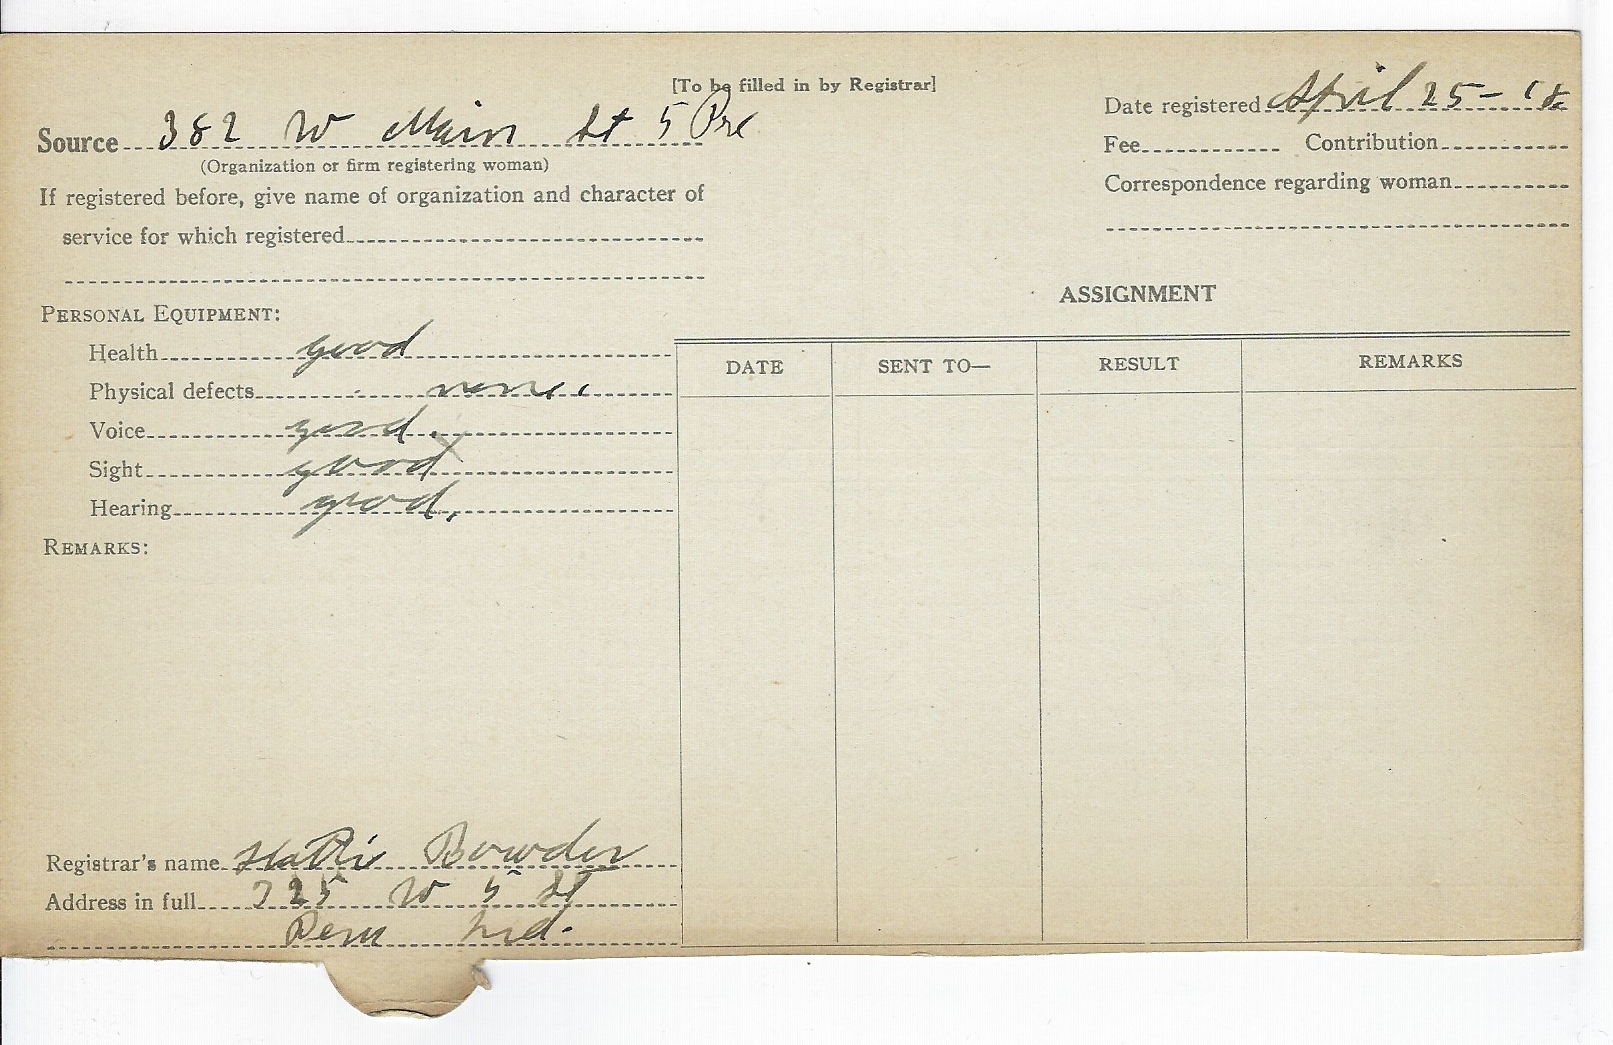 [To be filled in by Registrar]
Source 382 W Main St 5 Pre
(Organization or firm registering woman)
If registered before, give name of organization and character of
service for which registered
Date registered April 25-18
Fee Contribution
Correspondence regarding woman
PERSONAL EQUIPMENT:
Health good
Physical defects none
Voice good.
Sight good
Hearing good.
REMARKS:
ASSIGNMENT
DATE SENT TO— RESULT REMARKS
Registrar's name Hattie Bowder
Address in full 325 W 5 St
Peru Ind.